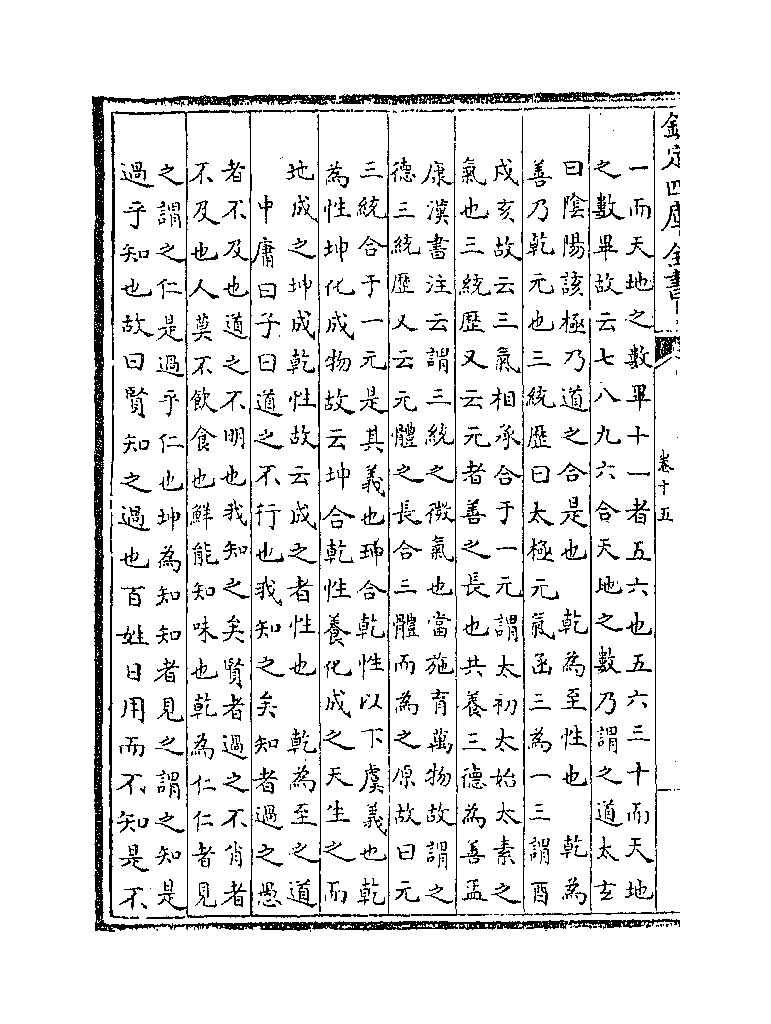 欽定四庫全書
卷十五
一而天地之數畢十一者五六也五六三十而天地
之數畢故云七八九六合天地之數乃謂之道太玄
曰陰陽該極乃道之合是也　乾為至性也　乾為
善乃乾元也三統歷曰太極元氣函三為一三謂酉
戌亥故云三氣相承合于一元謂太初太始太素之
氣也三統歷又云元者善之長也共養三德為善孟
康漢書注云謂三統之微氣也當施育萬物故謂之
德三統歷又云元體之長合三體而為之原故曰元
三統合于一元是其義也坤合乾性以下虞義也乾
為性坤化成物故云坤合乾性養化成之天生之而
地成之坤成乾性故云成之者性也　乾為至之道
中庸曰子曰道之不行也我知之矣知者過之愚
者不及也道之不明也我知之矣賢者過之不肖者
不及也人莫不飲食也鮮能知味也乾為仁仁者見
之謂之仁是過乎仁也坤為知知者見之謂之知是
過乎知也故曰賢知之過也百姓日用而不知是不